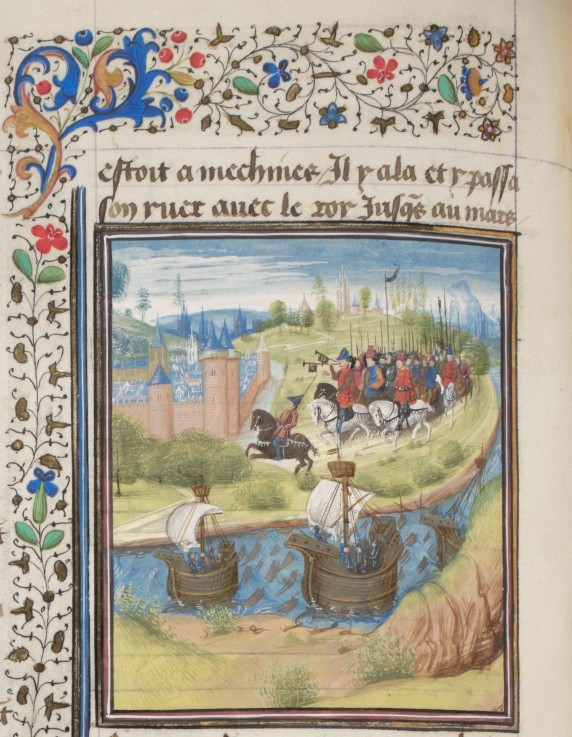 estoit a mechines / Il y ala et y passa
son yuer auec le roy Jusqs au mars